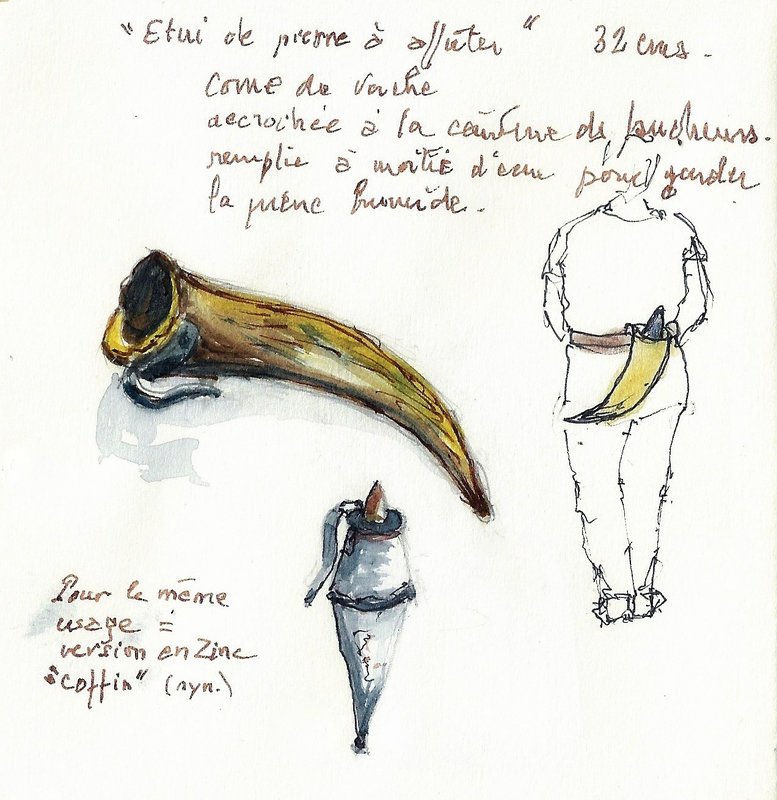 "Etui de pierre à affûter" 32 cms.
corne de vache
accrochée à la ceinture des faucheurs.
remplie à moitié d'eau pour garder
la pierre humide.
Pour le même
usage =
version en Zinc
"coffin" (syn.)